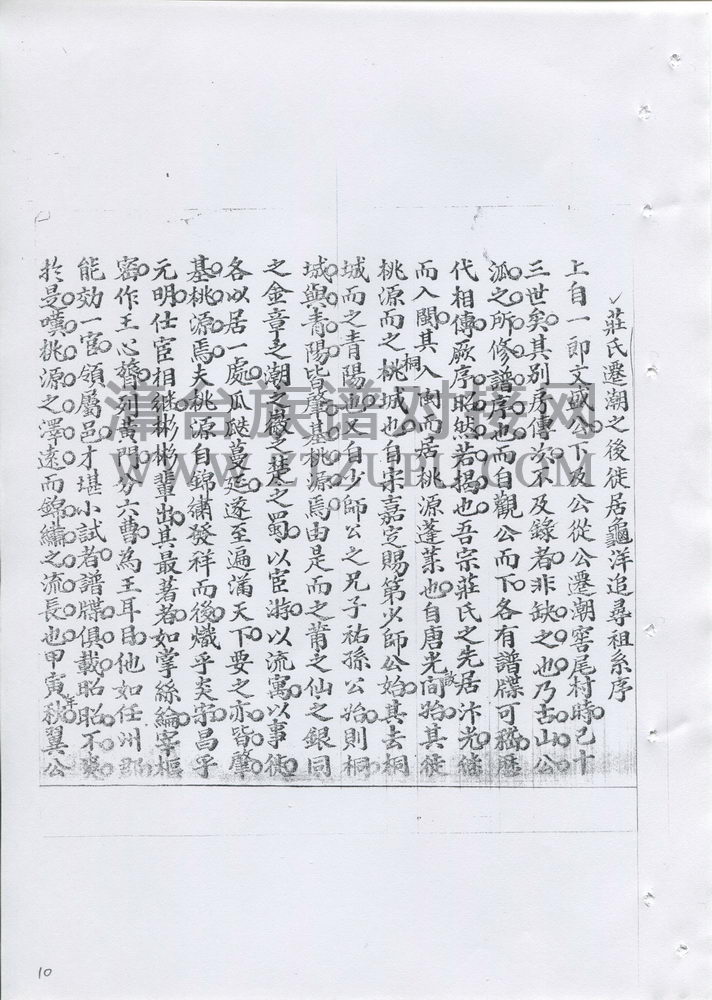 莊氏遷潮之後徙居龜洋追尋祖系序
上自一郎文盛公下及公從公遷潮窖尾村時已十
三世矣其別房傳次不及錄者非缺之也乃古山公
派之所修譜序也而自觀公而下各有譜牒可稽歷
代相傳厥序昭然若揭也吾宗莊氏之先居汴光
而入閩其入閩而居桃源蓬萊也自唐光啟間始其徙
桃源而之桃城也自宋嘉定賜第少師公始其去桐
城而之青陽也又自少師公之兄子祐孫公始則桐
城與青陽皆肇基桃源焉由是而之莆之仙之銀同
之金章之潮之黴之楚之蜀以宦游以流寓以事徙
各以居一處瓜瓞蔓延遂至遍滿天下要之亦皆肇
基桃源焉夫桃源自錦繡發祥而後熾乎炎宋昌乎
元明仕宦相繼彬彬輩出其最著者如掌絲綸宰樞
密作王心膂列黃門分六曹為王耳目他如任州郡
能効一官領屬邑才堪小試者譜牒俱載昭昭不爽
於是嘆桃源之澤遠而錦繡之流長也甲寅年秋翼公
津台族谱对接网
WWW.ZTZUPU.COM
10